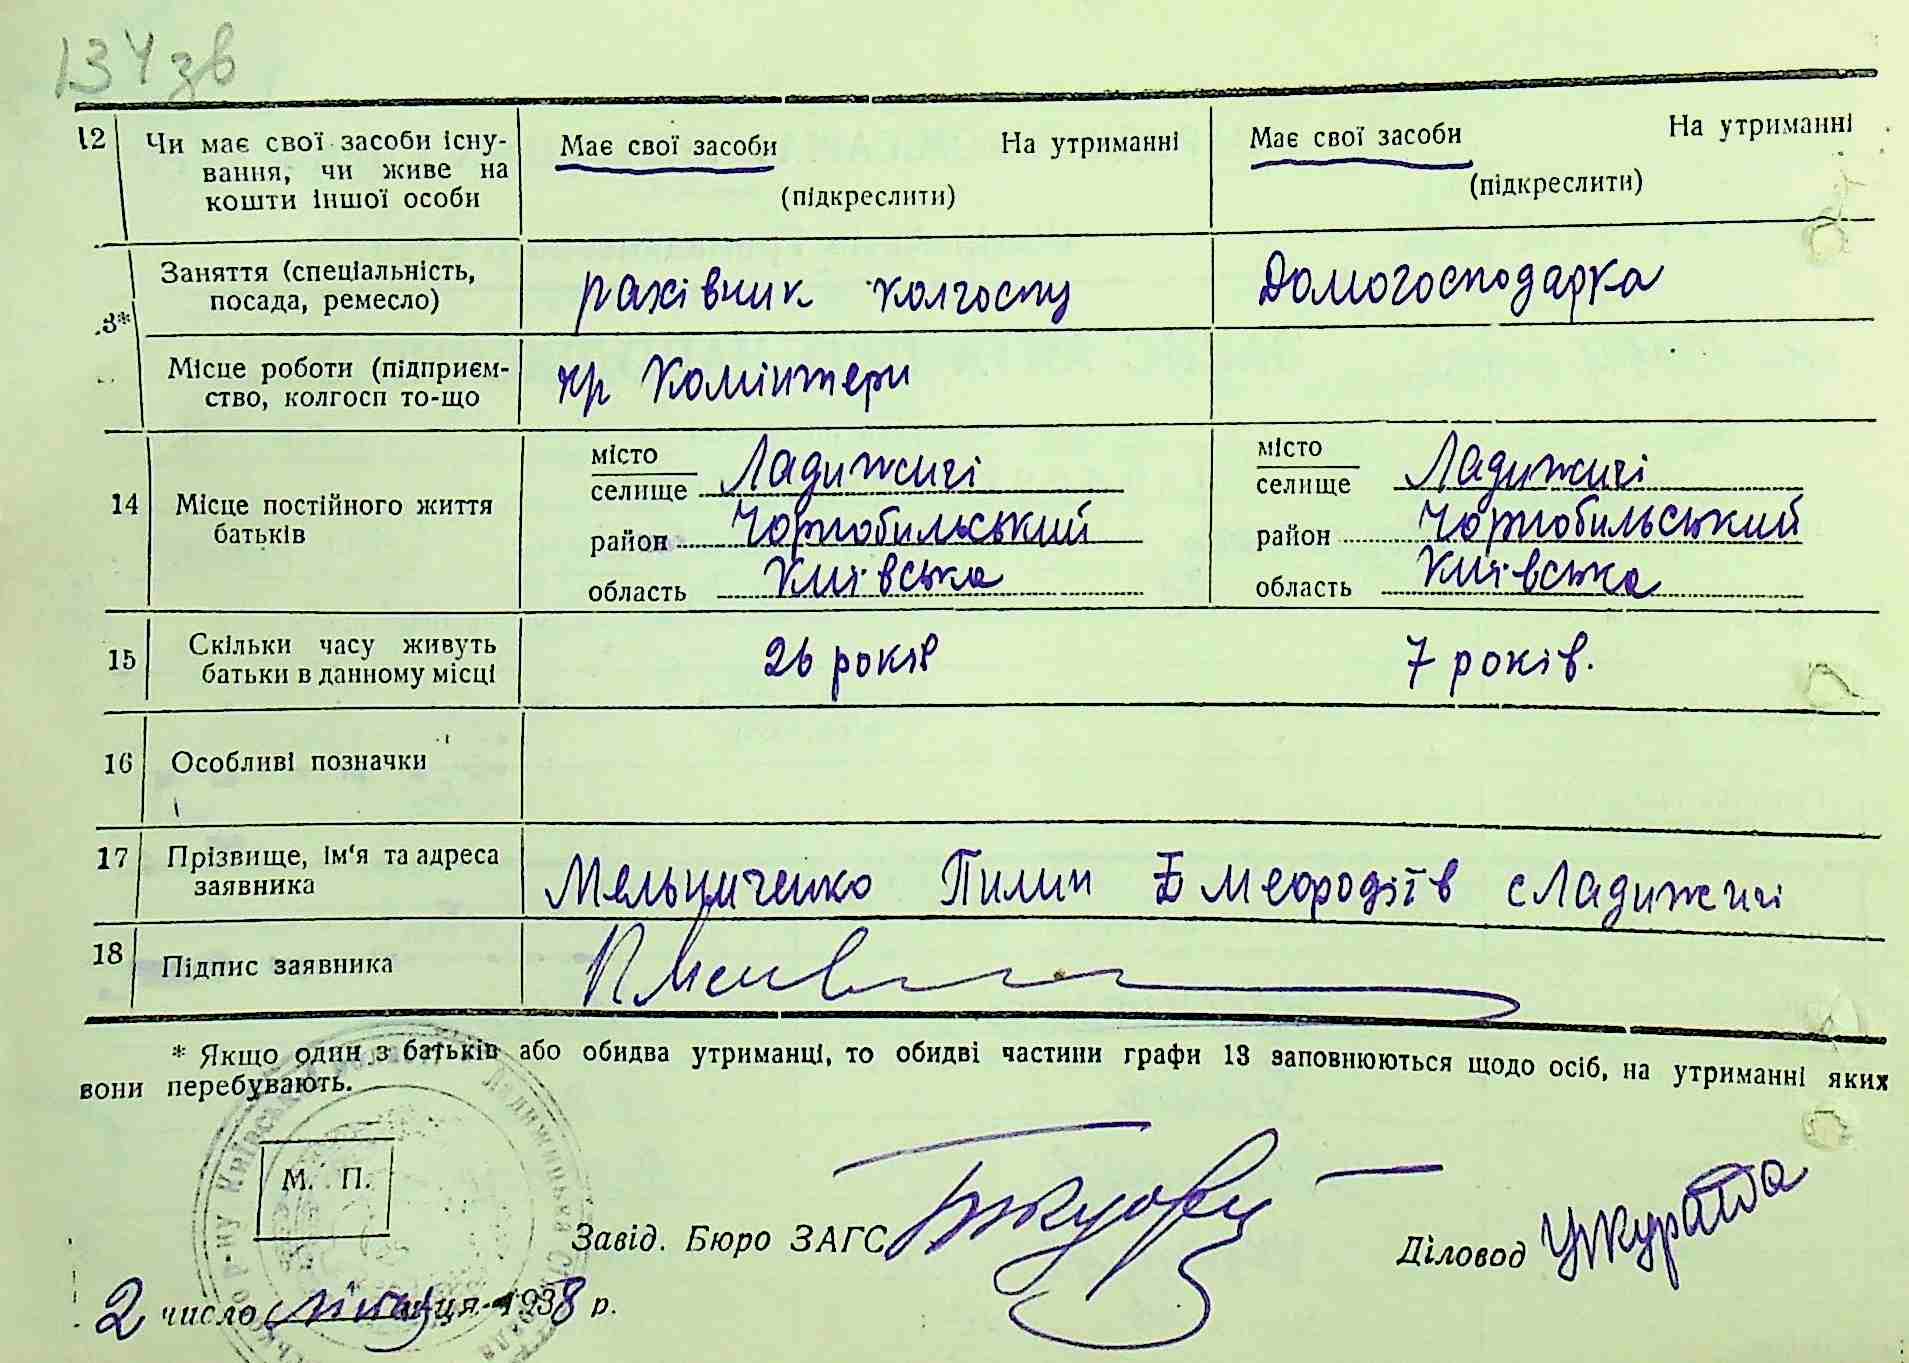 134 зв
12 Чи має свої засоби існу-
вання, чи живе на
кошти іншої особи
Має свої засоби На утриманні
(підкреслити)
Має свої засоби На утриманні
(підкреслити)
Заняття (спеціальність,
посада, ремесло)
рахівник колгоспу
Домогосподарка
3*
Місце роботи (підприєм-
ство, колгосп то-що
Комінтерн
14 Місце постійного життя
батьків
місто
селище Ладижичі
район Чорнобильський
область Київська
місто
селище Ладижичі
район Чорнобильський
область Київська
15 Скільки часу живуть
батьки в данному місці
26 років
7 років.
16 Особливі позначки
17 Прізвище, ім'я та адреса
заявника
Мельниченко Пилип Мефодіїв с Ладижичі
18 Підпис заявника
* Якщо один з батьків або обидва утриманці, то обидві частини графи 13 заповнюються щодо осіб, на утриманні яких
вони перебувають.
М. П.
Завід. Бюро ЗАГС
Діловод
2 число 1938 р.